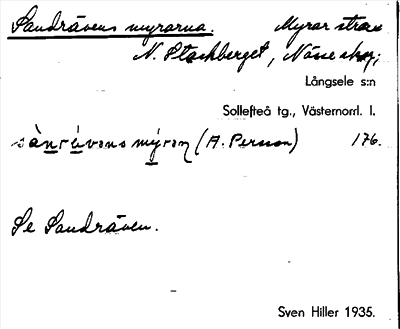 Sandrävens myrarna. Myrar strax
N. Stackberget, Näsåker;
Långsele s:n
Sollefteå tg., Västernorrl. l.
sànrévons mýron (A. Persson) 176.
Se Sandräven.
Sven Hiller 1935.